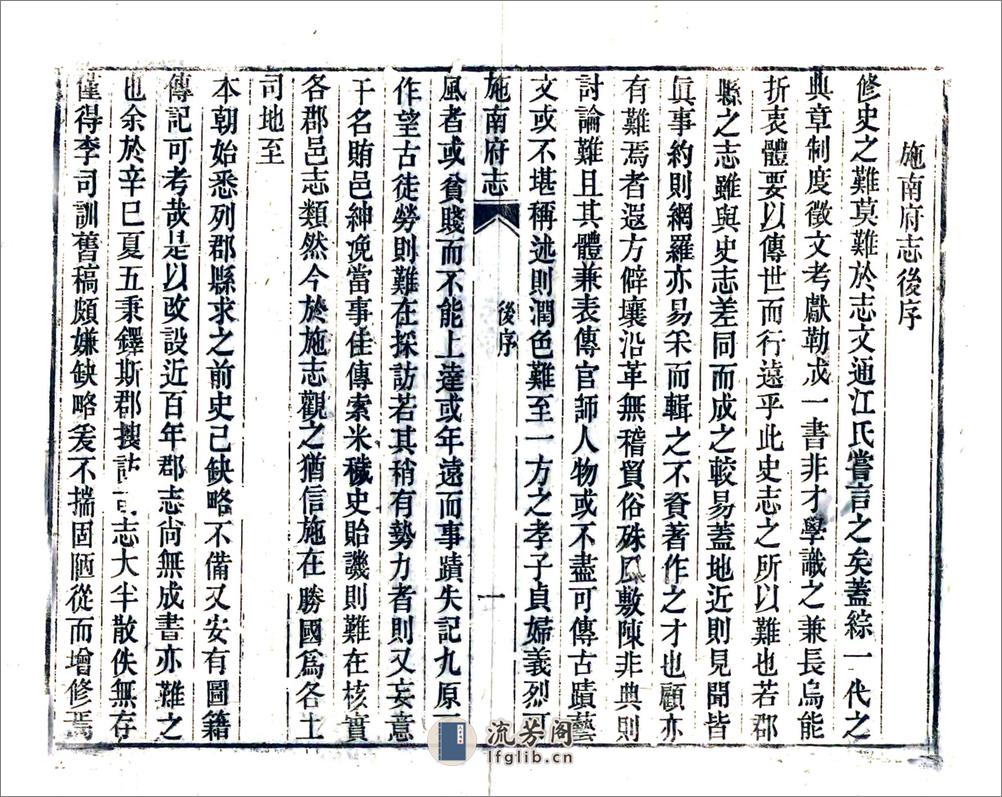 施南府志後序
修史之難莫難於志文通江氏嘗言之矣蓋綜一代之
典章制度徵文考獻勒成一書非才學識之兼長烏能
折衷體要以傳世而行遠乎此史志之所以難也若郡
縣之志雖與史志差同而成之較易蓋地近則見聞皆
眞事約則網羅亦易采而輯之不資著作之才也顧亦
有難焉者遐方僻壤沿革無稽貿俗殊風敷陳非典則
討論難且其體兼表傳官師人物或不盡可傳古蹟藝
文或不堪稱述則潤色難至一方之孝子貞婦義烈可
施南府志
後序
一
風者或貧賤而不能上達或年遠而事蹟失記九原
作望古徒勞則難在採訪若其稍有勢力者則又妄意
干名賄邑紳浼當事佳傳索米穢史貽譏則難在核實
各郡邑志類然今於施志觀之猶信施在勝國爲各土
司地至
本朝始悉列郡縣求之前史已缺略不備又安有圖籍
傳記可考哉是以改設近百年郡志尙無成書亦難之
也余於辛巳夏五秉鐸斯郡搜志大半散佚無存
僅得李司訓舊稿頗嫌缺略爰不揣固陋從而增修焉
流芳阁
lfglib.cn